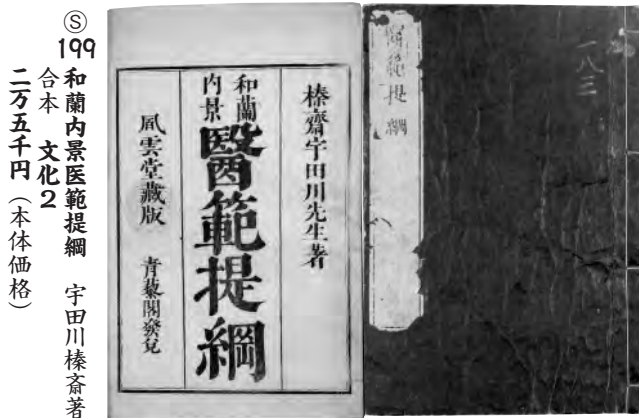 Ⓢ
199
和蘭内景医範提綱　宇田川榛斎著
合本　文化2
二万五千円（本体価格）
榛齋宇田川先生著
和蘭
内景
醫範提綱
風雲堂藏版　青藜閣發兌
一八三
醫範提綱